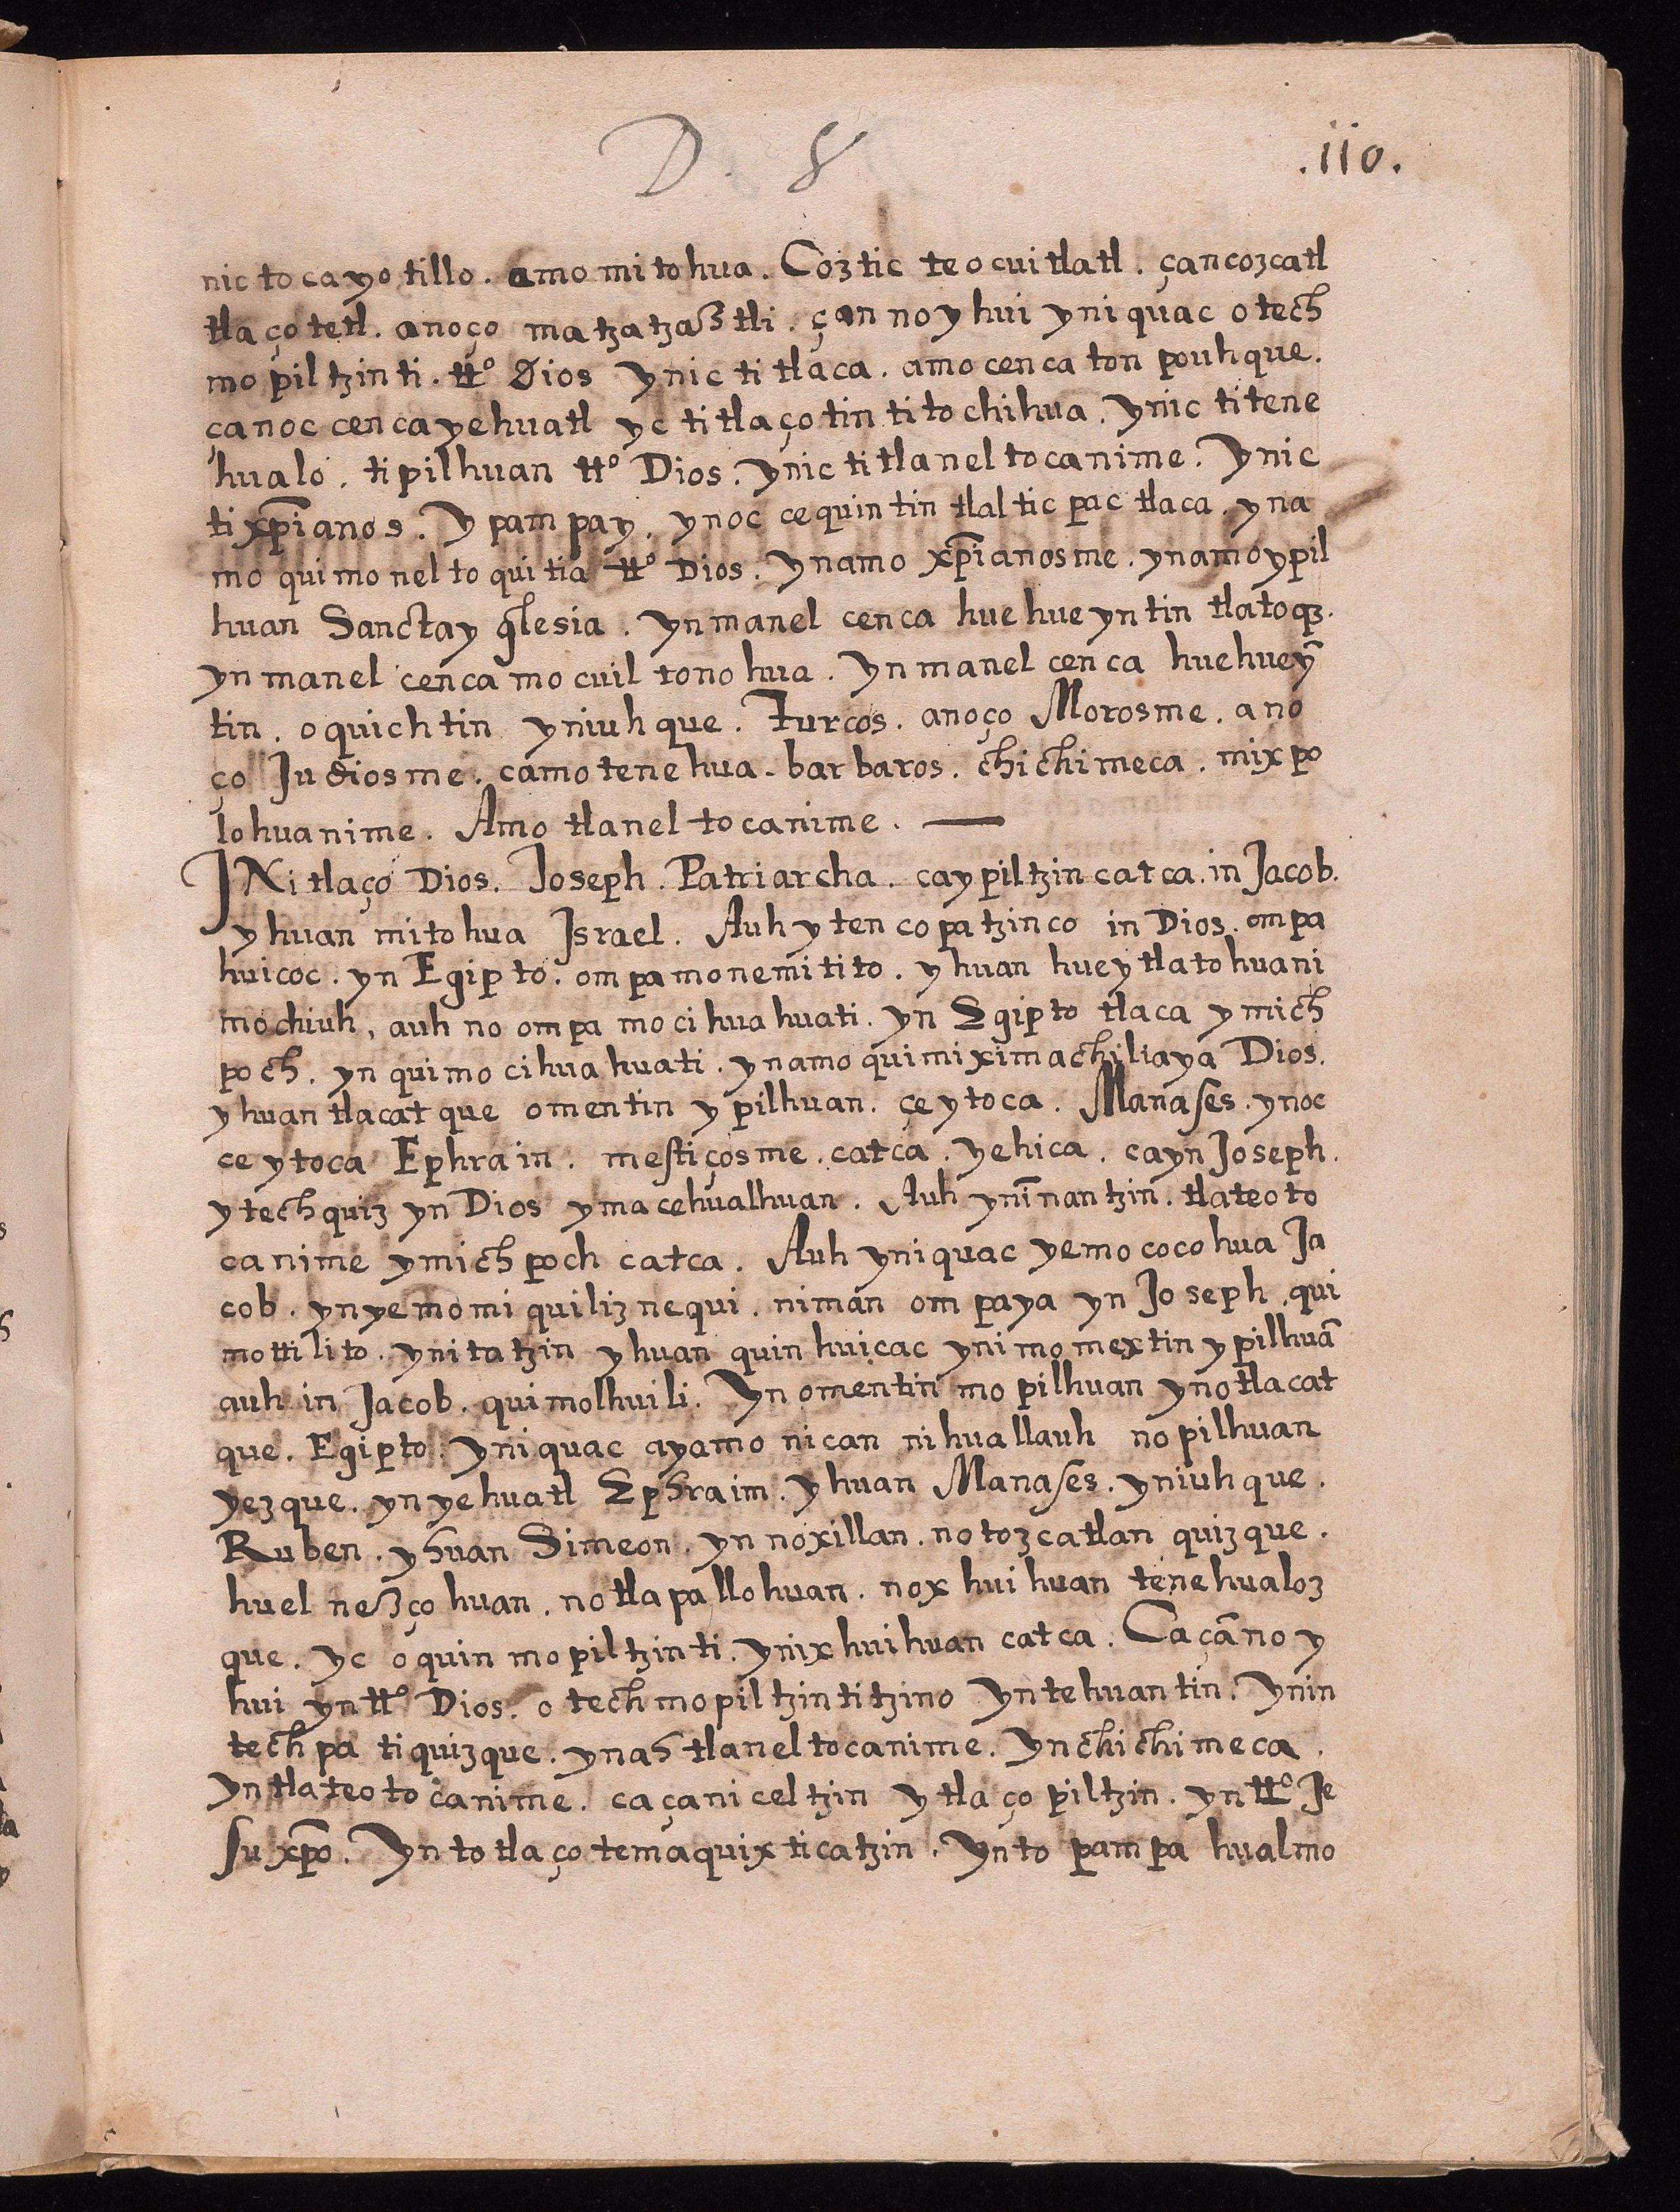 D. 8
.110.
nic tocayotillo. amo mitohua. Coztic teocuitlatl. çan cozcatl
tlaçotetl. anoço matzatzaztli. çan noyhui yniquac otech
mopiltzinti. tt.º Dios ynic titlaca. amo cenca ton pouhque.
çanoc cenca yehuatl yc titlaçotin titochihua. ynic titene
hualo. tipilhuan tt.º Dios. ynic titlaneltocanime. Ynic
tixp̃ianos. Ypampay. ynoc cequintin tlalticpac tlaca. yna
mo quimoneltoquitia tt.º Dios. Ynamo xp̃ianosme. ynamo ypil
huan Sancta yglesia. Yn manel cenca huehueyntin tlatoqȝ.
yn manel cenca mocuiltonohua. Yn manel cenca huehueỹ
tin. oquichtin yniuhque. Turcos. anoço Morosme. ano
ço Judiosme. camo tenehua. barbaros. chichimeca. mixpo
lohuanime. Amo tlaneltocanime. —
INi tlaço Dios. Joseph. Patriarcha. ca ypiltzin catca. in Jacob.
yhuan mitohua Israel. Auh ytencopatzinco in Dios. ompa
huicoc. yn Egipto. ompa monemitito. yhuan huey tlatohuani
mochiuh, auh no ompa mocihuahuati. yn Egipto tlaca ymich
poch. yn quimocihuahuati. ynamo quimiximachiliaya Dios.
yhuan tlacatque omentin ypilhuan. çe ytoca. Manases. ynoc
ce ytoca Ephrain. mestiçosme. catca. yehica. ca yn Joseph.
ytech quiz yn Dios ymacehualhuan. Auh ynĩnantzin. tlateoto
canime ymichpoch catca. Auh yniquac ye mococohua Ja
cob. yn ye momiquiliznequi. niman ompa ya yn Joseph, qui
mottilito. ynitatzin yhuan quinhuicac ynimomextin ypilhuã
auh in Jacob. quimolhuili. Yn omentin mopilhuan yn otlacat
que. Egipto. yniquac ayamo nican nihuallauh nopilhuan
yezque. yn yehuatl Ephraim. yhuan Manases. yniuhque.
Ruben. yhuan Simeon. yn noxillan. notozcatlan quizque.
huel nezçohuan. notlapallohuan. noxhuihuan tenehualoz
que. yc oquinmopiltzinti. ynixhuihuan catca. Ca çãno y
hui yn tt.º Dios. otechmopiltzintitzino Yntehuantin. Ynin
techpa tiquizque. yn ah tlaneltocanime. Yn chichimeca.
yn tlateotocanime. ca çan iceltzin ytlaçopiltzin. yn tt.º Je
su xp̃o. Yn totlaçotemaquixticatzin. Yn topampa hualmo